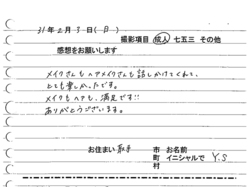 31年2月3日(日)
撮影項目 成人 七五三 その他
感想をお願いします
メイクさんもヘアメイクさんも話しかけてくれて、
とても楽しかったです。
メイクもヘアも、満足です!!
ありがとうございます。
お住まい 取手 市 町 村
お名前 イニシャルで Y.S